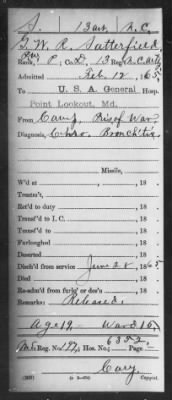 S. 13 Art. N.C.
G. W. R. Satterfield
Rank, P; Co. D, 13 Reg't N.C. Arty
Admitted Feb. 12, 1865,
To U. S. A. General Hosp.
Point Lookout, Md.
From Camp, Pris of War
Diagnosis, Chro. Bronchitis
Missile,
W'd at , 18
Treatm't,
Ret'd to duty , 18
Transf'd to I. C. , 18
Transf'd to , 18
Furloughed , 18
Deserted , 18
Disch'd from service June 28, 1865
Died , 18
Re-adm'd from furl' or des'n , 18
Remarks: Released.
Age 19. Ward 16.
Md. Reg. No. Hos. No.; Page
Cary.
Copyist.